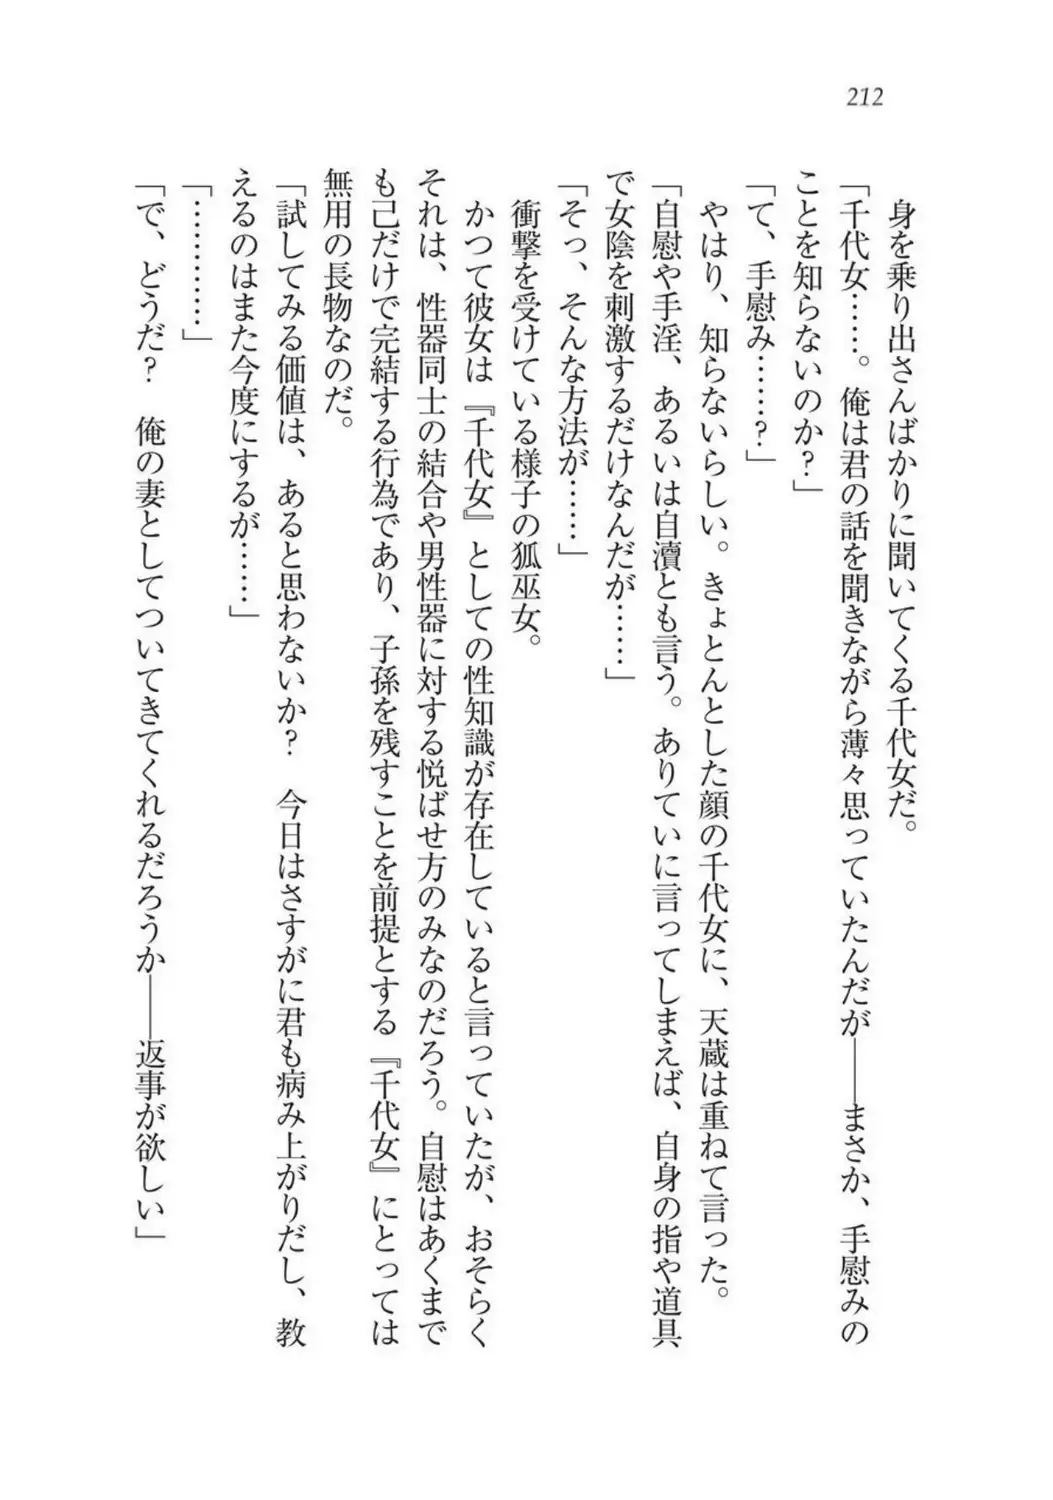 212
身を乗り出さんばかりに聞いてくる千代女だ。
「千代女……。俺は君の話を聞きながら薄々思っていたんだが――まさか、手慰みの
ことを知らないのか?」
「て、手慰み……?」
やはり、知らないらしい。きょとんとした顔の千代女に、天蔵は重ねて言った。
「自慰や手淫、あるいは自瀆とも言う。ありていに言ってしまえば、自身の指や道具
で女陰を刺激するだけなんだが……」
「そっ、そんな方法が……」
衝撃を受けている様子の狐巫女。
かつて彼女は『千代女』としての性知識が存在していると言っていたが、おそらく
それは、性器同士の結合や男性器に対する悦ばせ方のみなのだろう。自慰はあくまで
も己だけで完結する行為であり、子孫を残すことを前提とする『千代女』にとっては
無用の長物なのだ。
「試してみる価値は、あると思わないか? 今日はさすがに君も病み上がりだし、教
えるのはまた今度にするが……」
「…………」
「で、どうだ? 俺の妻としてついてきてくれるだろうか――返事が欲しい」